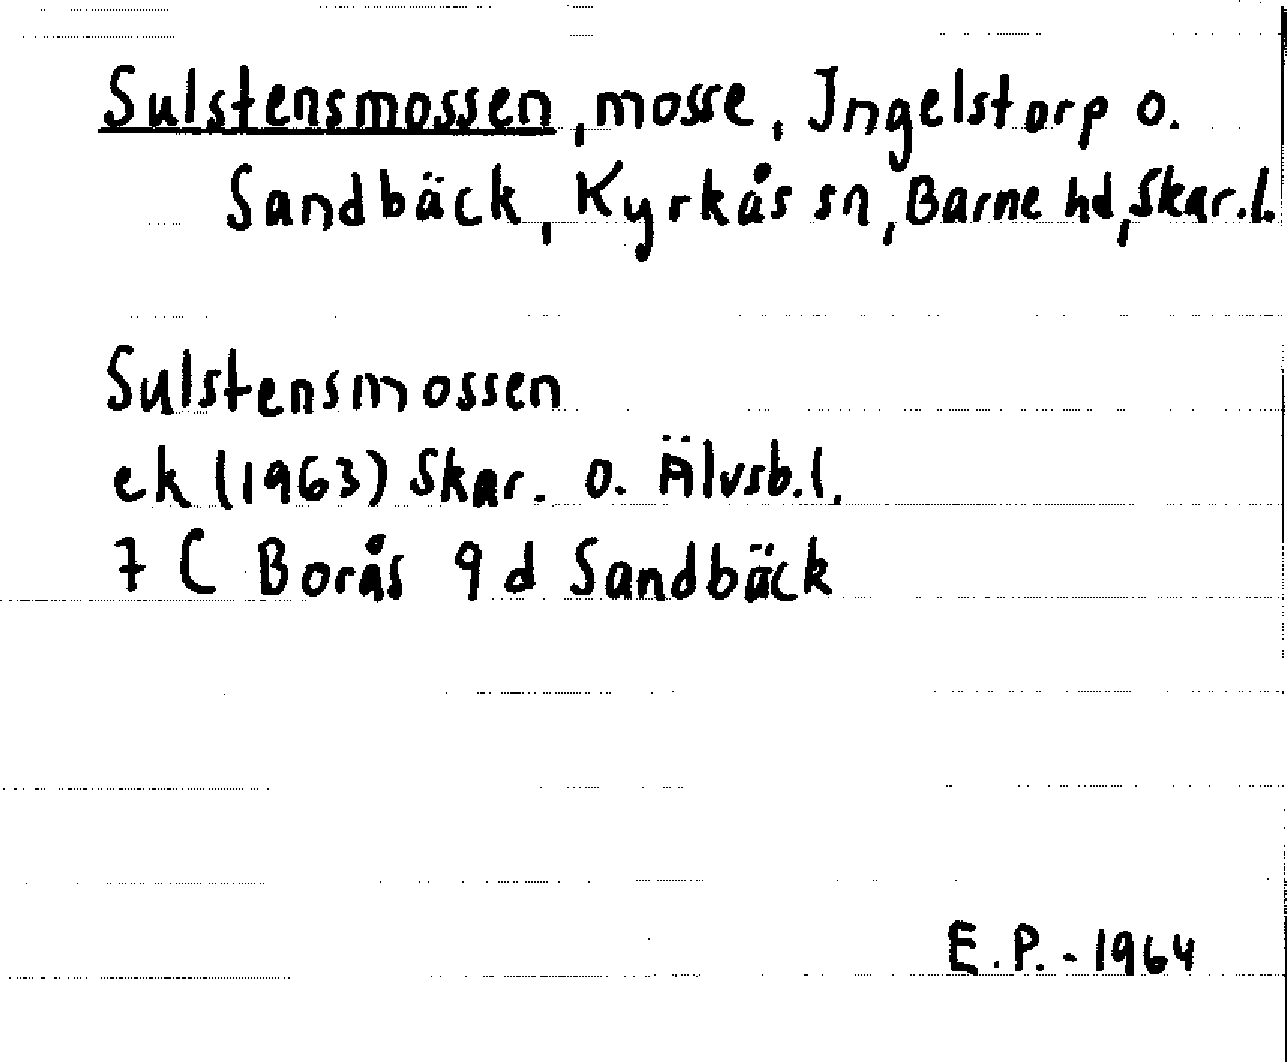 Sulstensmossen, mosse, Ingelstorp o.
Sandbäck, Kyrkås sn, Barne hd, Skar.l.
Sulstensmossen
ek (1963) Skar. o. Älvsb.l.
7 C Borås 9 d Sandbäck
E.P. - 1964